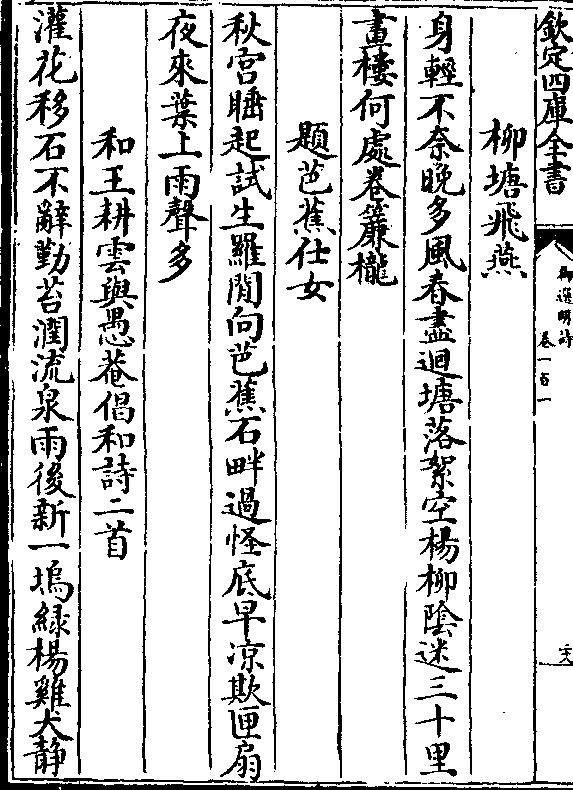 欽定四庫全書
御選明詩
卷一百一
柳塘飛燕
身輕不奈晚多風春盡迴塘落絮空楊柳陰迷三十里
畫樓何處卷簾櫳
題芭蕉仕女
秋宫睡起試生羅閒向芭蕉石畔過怪底早凉欺匣扇
夜來葉上雨聲多
和王耕雲與愚菴倡和詩二首
灌花移石不辭勤苔潤流泉雨後新一塢緑楊雞犬静